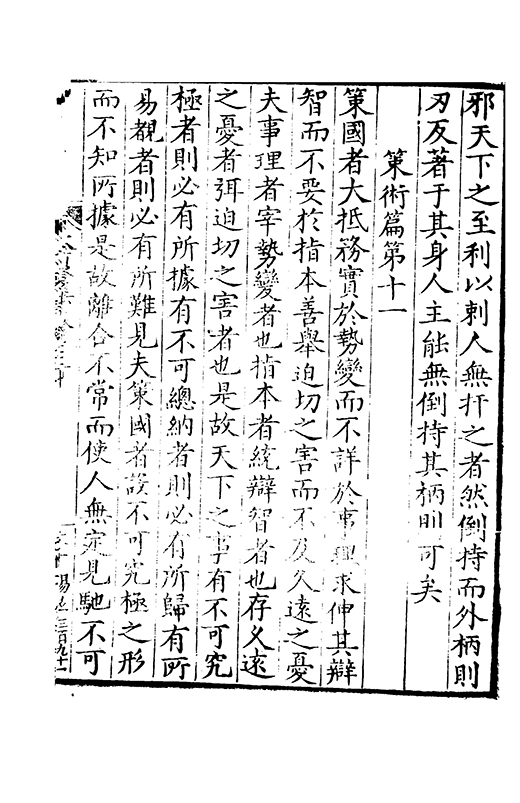 邪天下之至利以刺人無扞之者然倒持而外柄則
刃反著于其身人主能無倒持其柄則可矣
策術篇第十一
策國者大抵務實於勢變而不詳於事理求伸其辯
智而不要於指本善舉迫切之害而不及久遠之憂
夫事理者宰勢變者也指本者統辯智者也存久遠
之憂者弭迫切之害者也是故天下之事有不可究
極者則必有所據有不可總納者則必有所歸有所
易覩者則必有所難見夫策國者設不可究極之形
而不知所據是故離合不常而使人無定見馳不可
三百九十一